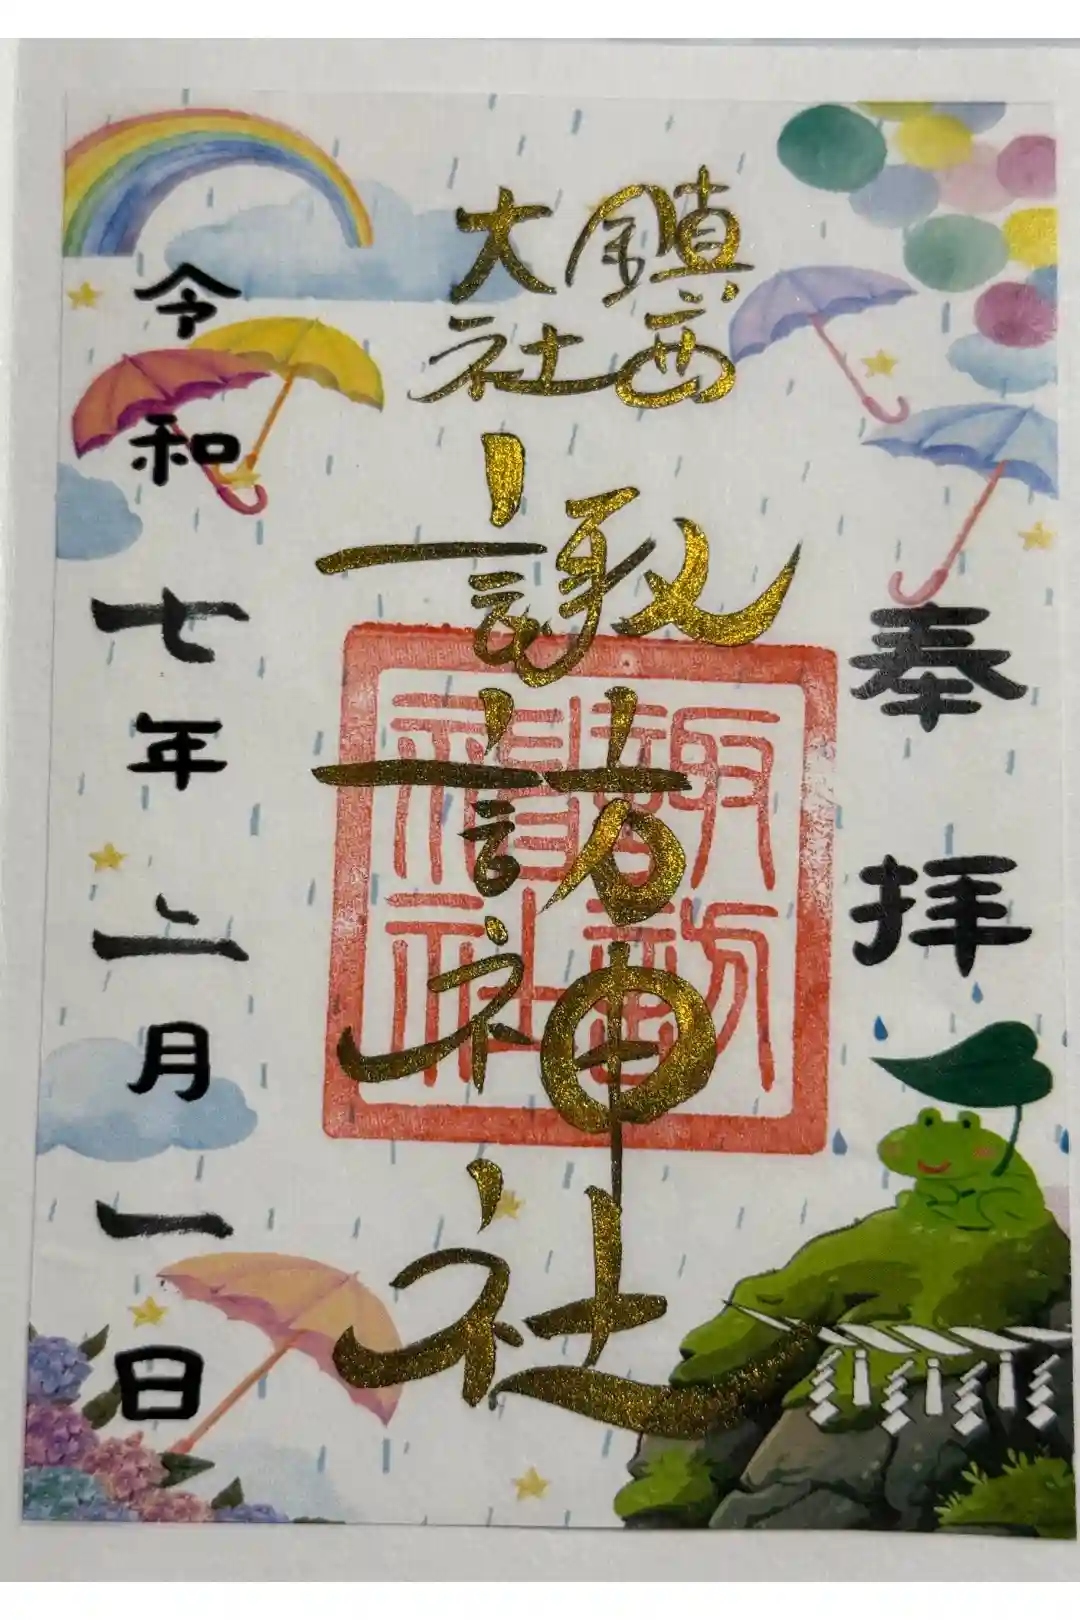 奉拝
鎮西
大社
諏訪神社
諏訪
神社
令和七年二月一日